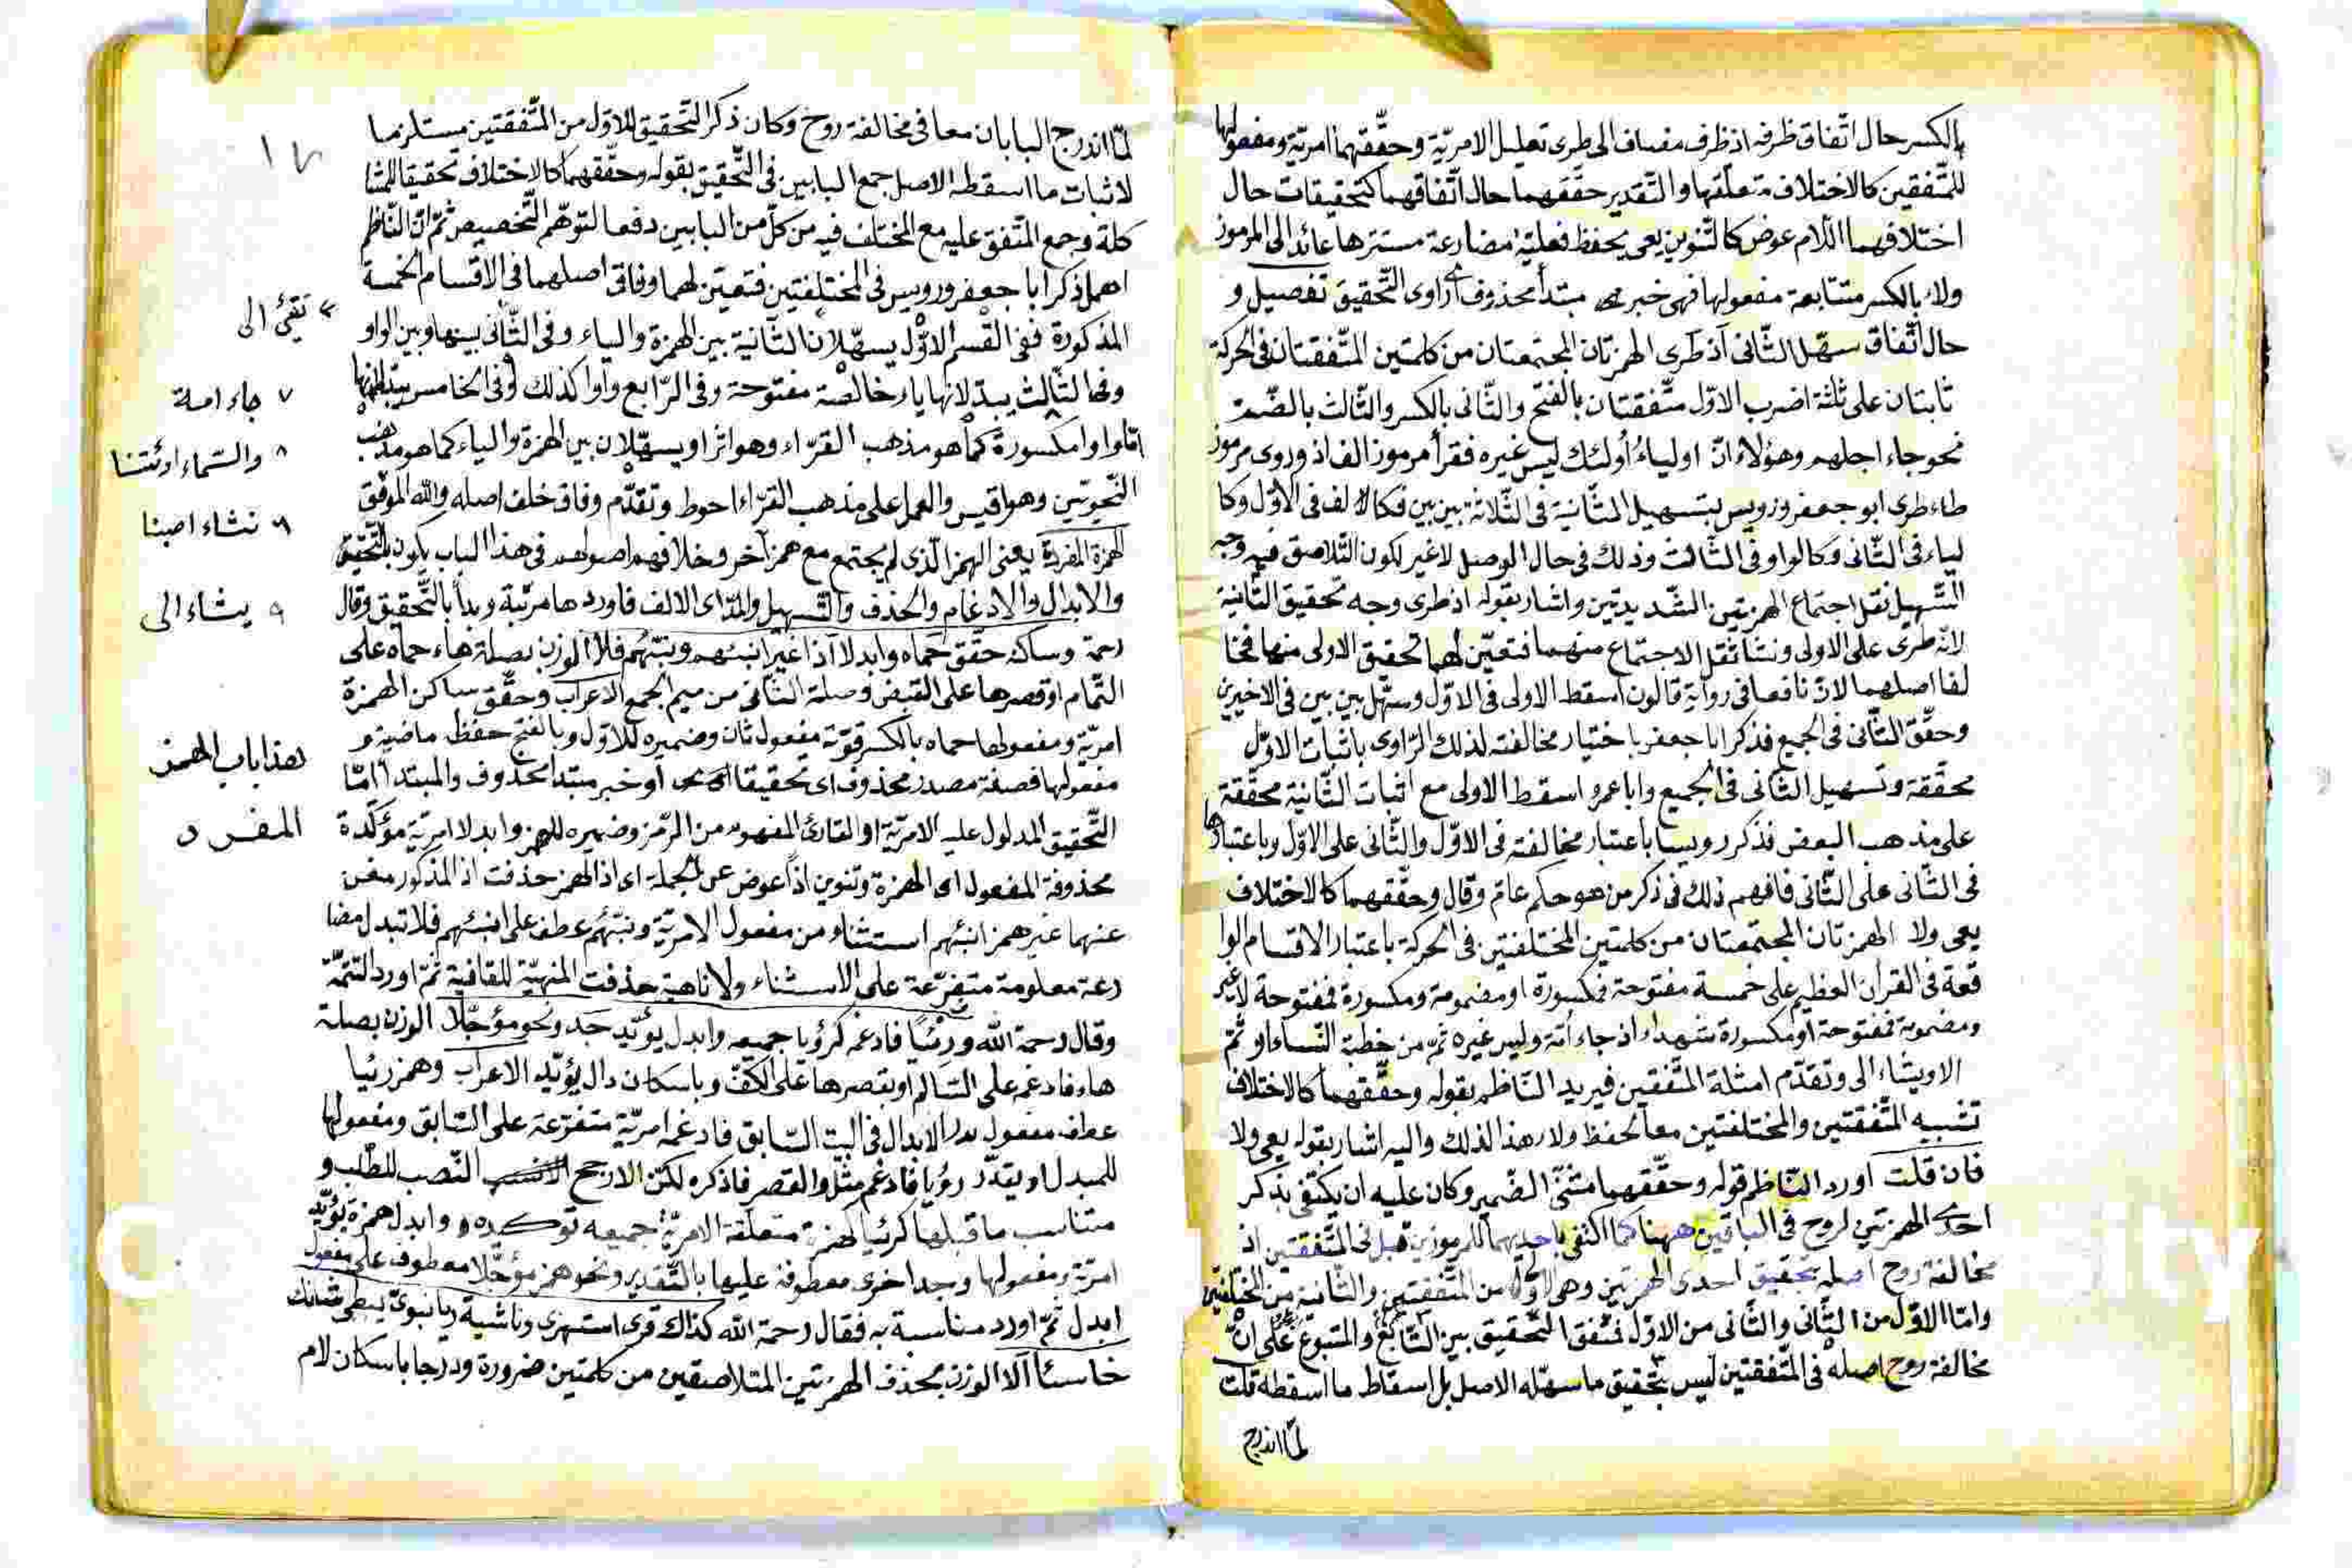 بالكسر حال اتّفاق ظرفه اذ ظرف مضاف الى طرى تعليل الامريّة وحقّقهما امريّة ومفعولها
للمتّفقين كالاختلاف متعلّقها والتّقدير حقّقهما حال اتّفاقهما كتحقيقات حال
اختلافهما اللام عوض كالتّنوين يعى يحفظ فعليّة مضارعة مستترها عائد الى المرموز
ولاء بالكسر متتابعة مفعولها فهى خبر مبتدأ محذوف اى راوى التّحقيق تفصيل و
حال اتّفاق سهّل الثّانى اذ طرى الهمزتان المجتمعتان من كلمتين المتّفقتان فى الحركة
ثابتان على ثلثة اضرب الاوّل متّفقتان بالفتح والثّانى بالكسر والثّالث بالضّمّ
نحو جاء اجلهم وهؤلاء انّ اولياء أولئك ليس غيره فقرأ مرموز الف اذ وروى مرموز
طاء طرى ابو جعفر ورويس بتسهيل الثّانية فى الثّلاثة بين بين فكالالف فى الاوّل وكا
لياء فى الثّانى وكالواو فى الثّالث وذلك فى حال الوصل لاغير لكون التّلاصق فيه وجه
التّسهيل ثقل اجتماع الهمزتين الشّديدتين واشار بقوله اذ طرى وجه تحقيق الثّانية
لانّه طرى على الاولى ونشأ ثقل الاجتماع منهما فتعيّن لهما تحقيق الاولى منها فخا
لفا اصلهما لانّ نافعا فى رواية قالون اسقط الاولى فى الاوّل وسهّل بين بين فى الاخيرين
وحقّق الثّانى فى الجميع فذكر ابا جعفر باختيار مخالفته لذلك الرّاوى باثبات الاوّل
محقّقة وتسهيل الثّانى فى الجميع وابا عمرو اسقط الاولى مع اثبات الثّانية محقّقة
على مذهب البعض فذكر رويسا باعتبار مخالفته فى الاوّل والثّانى على الاوّل وباعتبارها
فى الثّانى على الثّانى فافهم ذلك فى ذكر من هو حكم عامّ وقال وحقّقهما كالاختلاف
يعى ولا الهمزتان المجتمعتان من كلمتين المختلفتين فى الحركة باعتبار الاقسام الوا
قعة فى القران العظيم على خمسة مفتوحة فمكسورة او مضمومة ومكسورة فمفتوحة لاغير
ومضمومة فمفتوحة او مكسورة شهداء اذ جاء أمّة وليس غيره ثمّ من خطبة النّساء او ثمّ
الاويشاء الى وتقدّم امثلة المتّفقين فيريد النّاظم بقوله وحقّقهما كالاختلاف
تشبيه المتّفقتين والمختلفتين معا لحفظ ولاء هذا لذلك واليه اشار بقوله يعى ولا
فان قلت اورد النّاظم قوله وحقّقهما مثنّى الضّمير وكان عليه ان يكتفى بذكر
احدى الهمزتين لروح فى البابين ههنا كما اكتفى باحديهما للمرموزين قبل فى المتّفقتين اذ
مخالفة روح اصله بتحقيق احدى الهمزتين وهى الاولى من المتّفقتين والثّانية من المختلفتين
وامّا الاوّل من الثّانى والثّانى من الاوّل فمتّفق التّحقيق بين التّابع والمتبوع على انّ
مخالفة روح اصله فى المتّفقتين ليس بتحقيق ما سهّله الاصل بل اسقاط ما اسقطه قلت
لمّا اندرج
لمّا اندرج البابان معا فى مخالفة روح وكان ذكر التّحقيق للاوّل من المتّفقتين مستلزما
لاثبات ما اسقطه الاصل جمع البابين فى التّحقيق بقوله وحقّقهما كالاختلاف تحقيقا
كلة وجمع المتّفق عليه مع المختلف فيه من كلّ من البابين دفعا لتوهّم التّخصيص ثمّ انّ النّاظم
اهمل ذكر ابا جعفر ورويس فى المختلفتين فتعيّن لهما وفاق اصلهما فى الاقسام الخمسة
المذكورة ففى القسم الاوّل يسهّلان الثّانية بين الهمزة والياء وفى الثّانى بينها وبين الواو
وفى الثّالث يبدلانها ياء خالصة مفتوحة وفى الرّابع واوا كذلك وفى الخامس يبدلانها
امّا واوا مكسورة كما هو مذهب القرّاء وهو اثر او يسهّلان بين الهمزة والياء كما هو مذهب
النّحويّين وهو اقيس والعمل على مذهب القرّاء احوط وتقدّم وفاق خلف اصله والله الموفّق
الهمزة المفردة يعنى الهمز الّذى لم يجتمع مع همز آخر وخلافهم اصولهم فى هذا الباب يكون بالتّحقيق
والابدال والادغام والحذف والتّسهيل والمدّ اى الالف فاوردها مرتّبة وبدأ بالتّحقيق وقال
رحمة وساكنه حقّق حماه وابدلا اذا غير انبئهم ونبّئهم فلا الوزن بصلة هاء حماه على
التّمام او قصرها على القبض وصلة الثّانى من ميم الجمع الاعراب وحقّق ساكن الهمزة
امريّة ومفعولها حماه بالكسر قوّته مفعول ثان وضميره للاوّل وبالفتح حفظ ماضية و
مفعولها فصفة مصدر محذوف اى تحقيقا او خبر مبتدأ محذوف والمبتدأ امّا
التّحقيق المدلول عليه الامريّة او القارئ المفهوم من الرّمز وضميره للهمز وابدلا امريّة مؤكّدة
محذوفة المفعول اى الهمزة وتنوين اذا عوض عن الجملة اى اذ الهمز حذفت اذ المذكور مغن
عنهما غير همز انبئهم استثناء من مفعول الامريّة ونبّئهم عطف على انبئهم فلا تبدل مضا
رعة معلومة متفرّعة على الاستثناء ولا ناهية حذفت المنهيّة للقافية ثمّ اورد التتمّة
وقال رحمة الله ورئيا فادغمه كرؤيا جميعه وابدل يؤيّد جد ونحو مؤجّلا الوزن بصلة
هاء فادغمه على السّالم او بقصرها على الكفّ وباسكان دال يؤيّد الاعراب وهمز رئيا
عطف مفعول الابدال فى البت السّابق فادغمه امريّة متفرّعة على السّابق ومفعولها
للمبدل او يقدّر رؤيا فادغم مثّل والقصر فاذكره لكنّ الارجح النّصب للطّلب و
متناسب ما قبلها كرئيا لهمزة متعلّقة الامريّة جميعه توكيده وابدل همزة يؤيّد
امريّة ومفعولها وجد اخرى معطوفة عليها بالتّقدير ونحو همز مؤجّلا معطوف على مفعول
ابدل ثمّ اورد مناسبة به فقال رحمة الله كذاك قرى استهزى وناشية ريا نبوّئ يبطّى شانئك
خاسئا الا الوزن بحذف الهمزتين المتلاصقين من كلمتين ضرورة ودرجا باسكان لام
تفئ الى
٧ جاء امة
٨ والسّماء او ئتنا
٩ نشاء اصبنا
٩ يشاء الى
هذا باب الهمز
المفرد